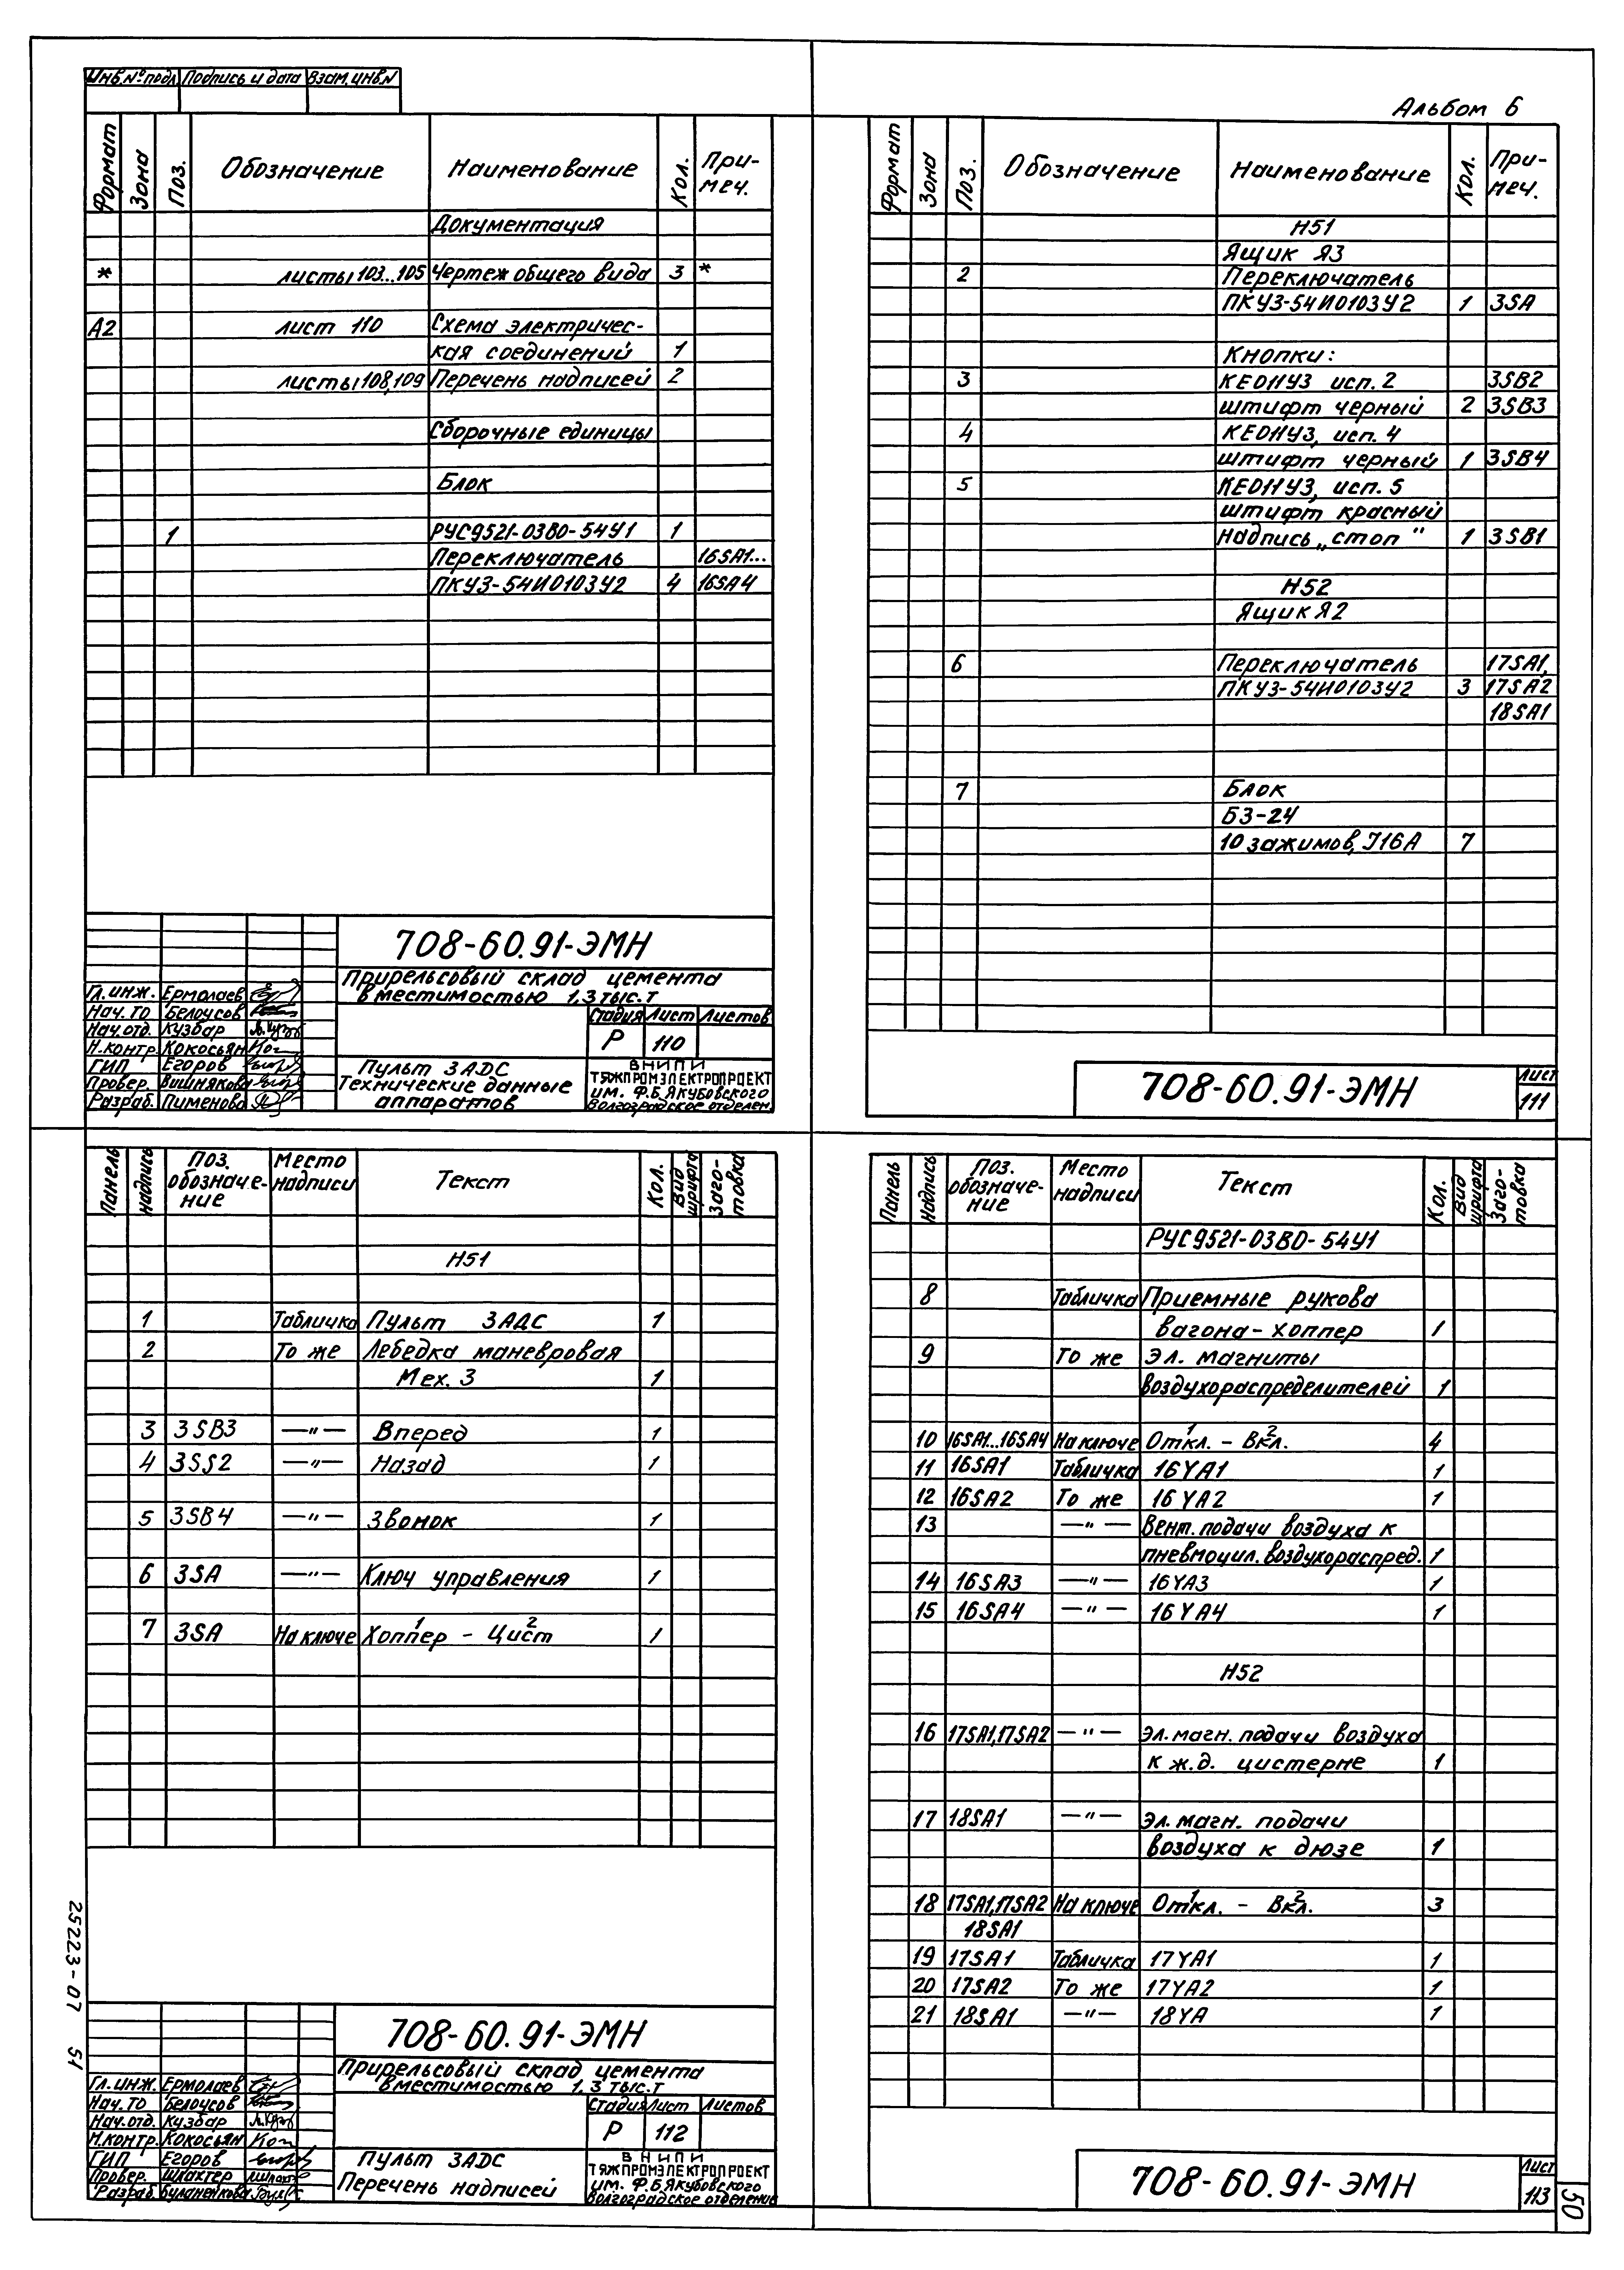 Инв.№ подл. Подпись и дата Взам.инв.№
Формат Зона Поз. Обозначение Наименование Кол. При-
меч.
Документация
* листы 103...105 Чертеж общего вида 3 *
А2 лист 110 Схема электричес-
кая соединений 1
листы 108,109 Перечень надписей 2
Сборочные единицы
Блок
1 РУС9521-03В0-54У1 1
Переключатель 16SA1...
ПКУ3-54И0103У2 4 16SA4
708-60.91-ЭМН
Прирельсовый склад цемента
вместимостью 1,3 тыс.т
Гл.инж. Ермолаев
Нач.ТО Белоусов
Нач.отд. Кузбар
Н.контр. Кокосьян
ГИП Егоров
Провер. Вишнякова
Разраб. Пименова
Стадия Лист Листов
Р 110
Пульт 3АДС
Технические данные
аппаратов
ВНИПИ
ТЯЖПРОМЭЛЕКТРОПРОЕКТ
им. Ф.Б.Якубовского
Волгоградское отделен.
Альбом 6
Формат Зона Поз. Обозначение Наименование Кол. При-
меч.
Н51
Ящик Я3
2 Переключатель
ПКУ3-54И0103У2 1 3SA
Кнопки:
3 КЕ011У3 исп. 2 3SB2
штифт черный 2 3SB3
4 КЕ011У3, исп. 4
штифт черный 1 3SB4
5 КЕ011У3, исп. 5
штифт красный
надпись „стоп" 1 3SB1
Н52
Ящик Я2
6 Переключатель 17SA1,
ПКУ3-54И0103У2 3 17SA2
18SA1
7 Блок
Б3-24
10 зажимов, J16А 7
708-60.91-ЭМН
Лист
111
Панель Надпись Поз.
обозначе-
ние Место
надписи Текст Кол. Вид
шрифта Заго-
товка
Н51
1 Табличка Пульт 3АДС 1
2 То же Лебедка маневровая
Мех. 3 1
3 3SB3 —"— Вперед 1
4 3SS2 —"— Назад 1
5 3SB4 —"— Звонок 1
6 3SA —"— Ключ управления 1
7 3SA На ключе Хоппер 1 - Цист 2 1
708-60.91-ЭМН
Прирельсовый склад цемента
вместимостью 1,3 тыс.т
Гл.инж. Ермолаев
Нач.ТО Белоусов
Нач.отд. Кузбар
Н.контр. Кокосьян
ГИП Егоров
Провер. Шлахтер
Разраб. Буланенкова
Стадия Лист Листов
Р 112
Пульт 3АДС
Перечень надписей
ВНИПИ
ТЯЖПРОМЭЛЕКТРОПРОЕКТ
им. Ф.Б.Якубовского
Волгоградское отделение
25223-07 51
Панель Надпись Поз.
обозначе-
ние Место
надписи Текст Кол. Вид
шрифта Заго-
товка
РУС9521-03В0-54У1
8 Табличка Приемные рукова
вагона-хоппер 1
9 То же Эл. магниты
воздухораспределителей 1
10 16SA1...16SA4 На ключе Откл. 1 - Вкл. 2 4
11 16SA1 Табличка 16YA1 1
12 16SA2 То же 16YA2 1
13 —"— Вент. подачи воздуха к
пневмоцил. воздухораспред. 1
14 16SA3 —"— 16YA3 1
15 16SA4 —"— 16YA4 1
Н52
16 17SA1,17SA2 —"— Эл.магн. подачи воздуха
к ж.д. цистерне 1
17 18SA1 —"— Эл.магн. подачи
воздуха к дюзе 1
18 17SA1,17SA2 На ключе Откл. 1 - Вкл. 2 3
18SA1
19 17SA1 Табличка 17YA1 1
20 17SA2 То же 17YA2 1
21 18SA1 —"— 18YA 1
708-60.91-ЭМН
Лист
113
50